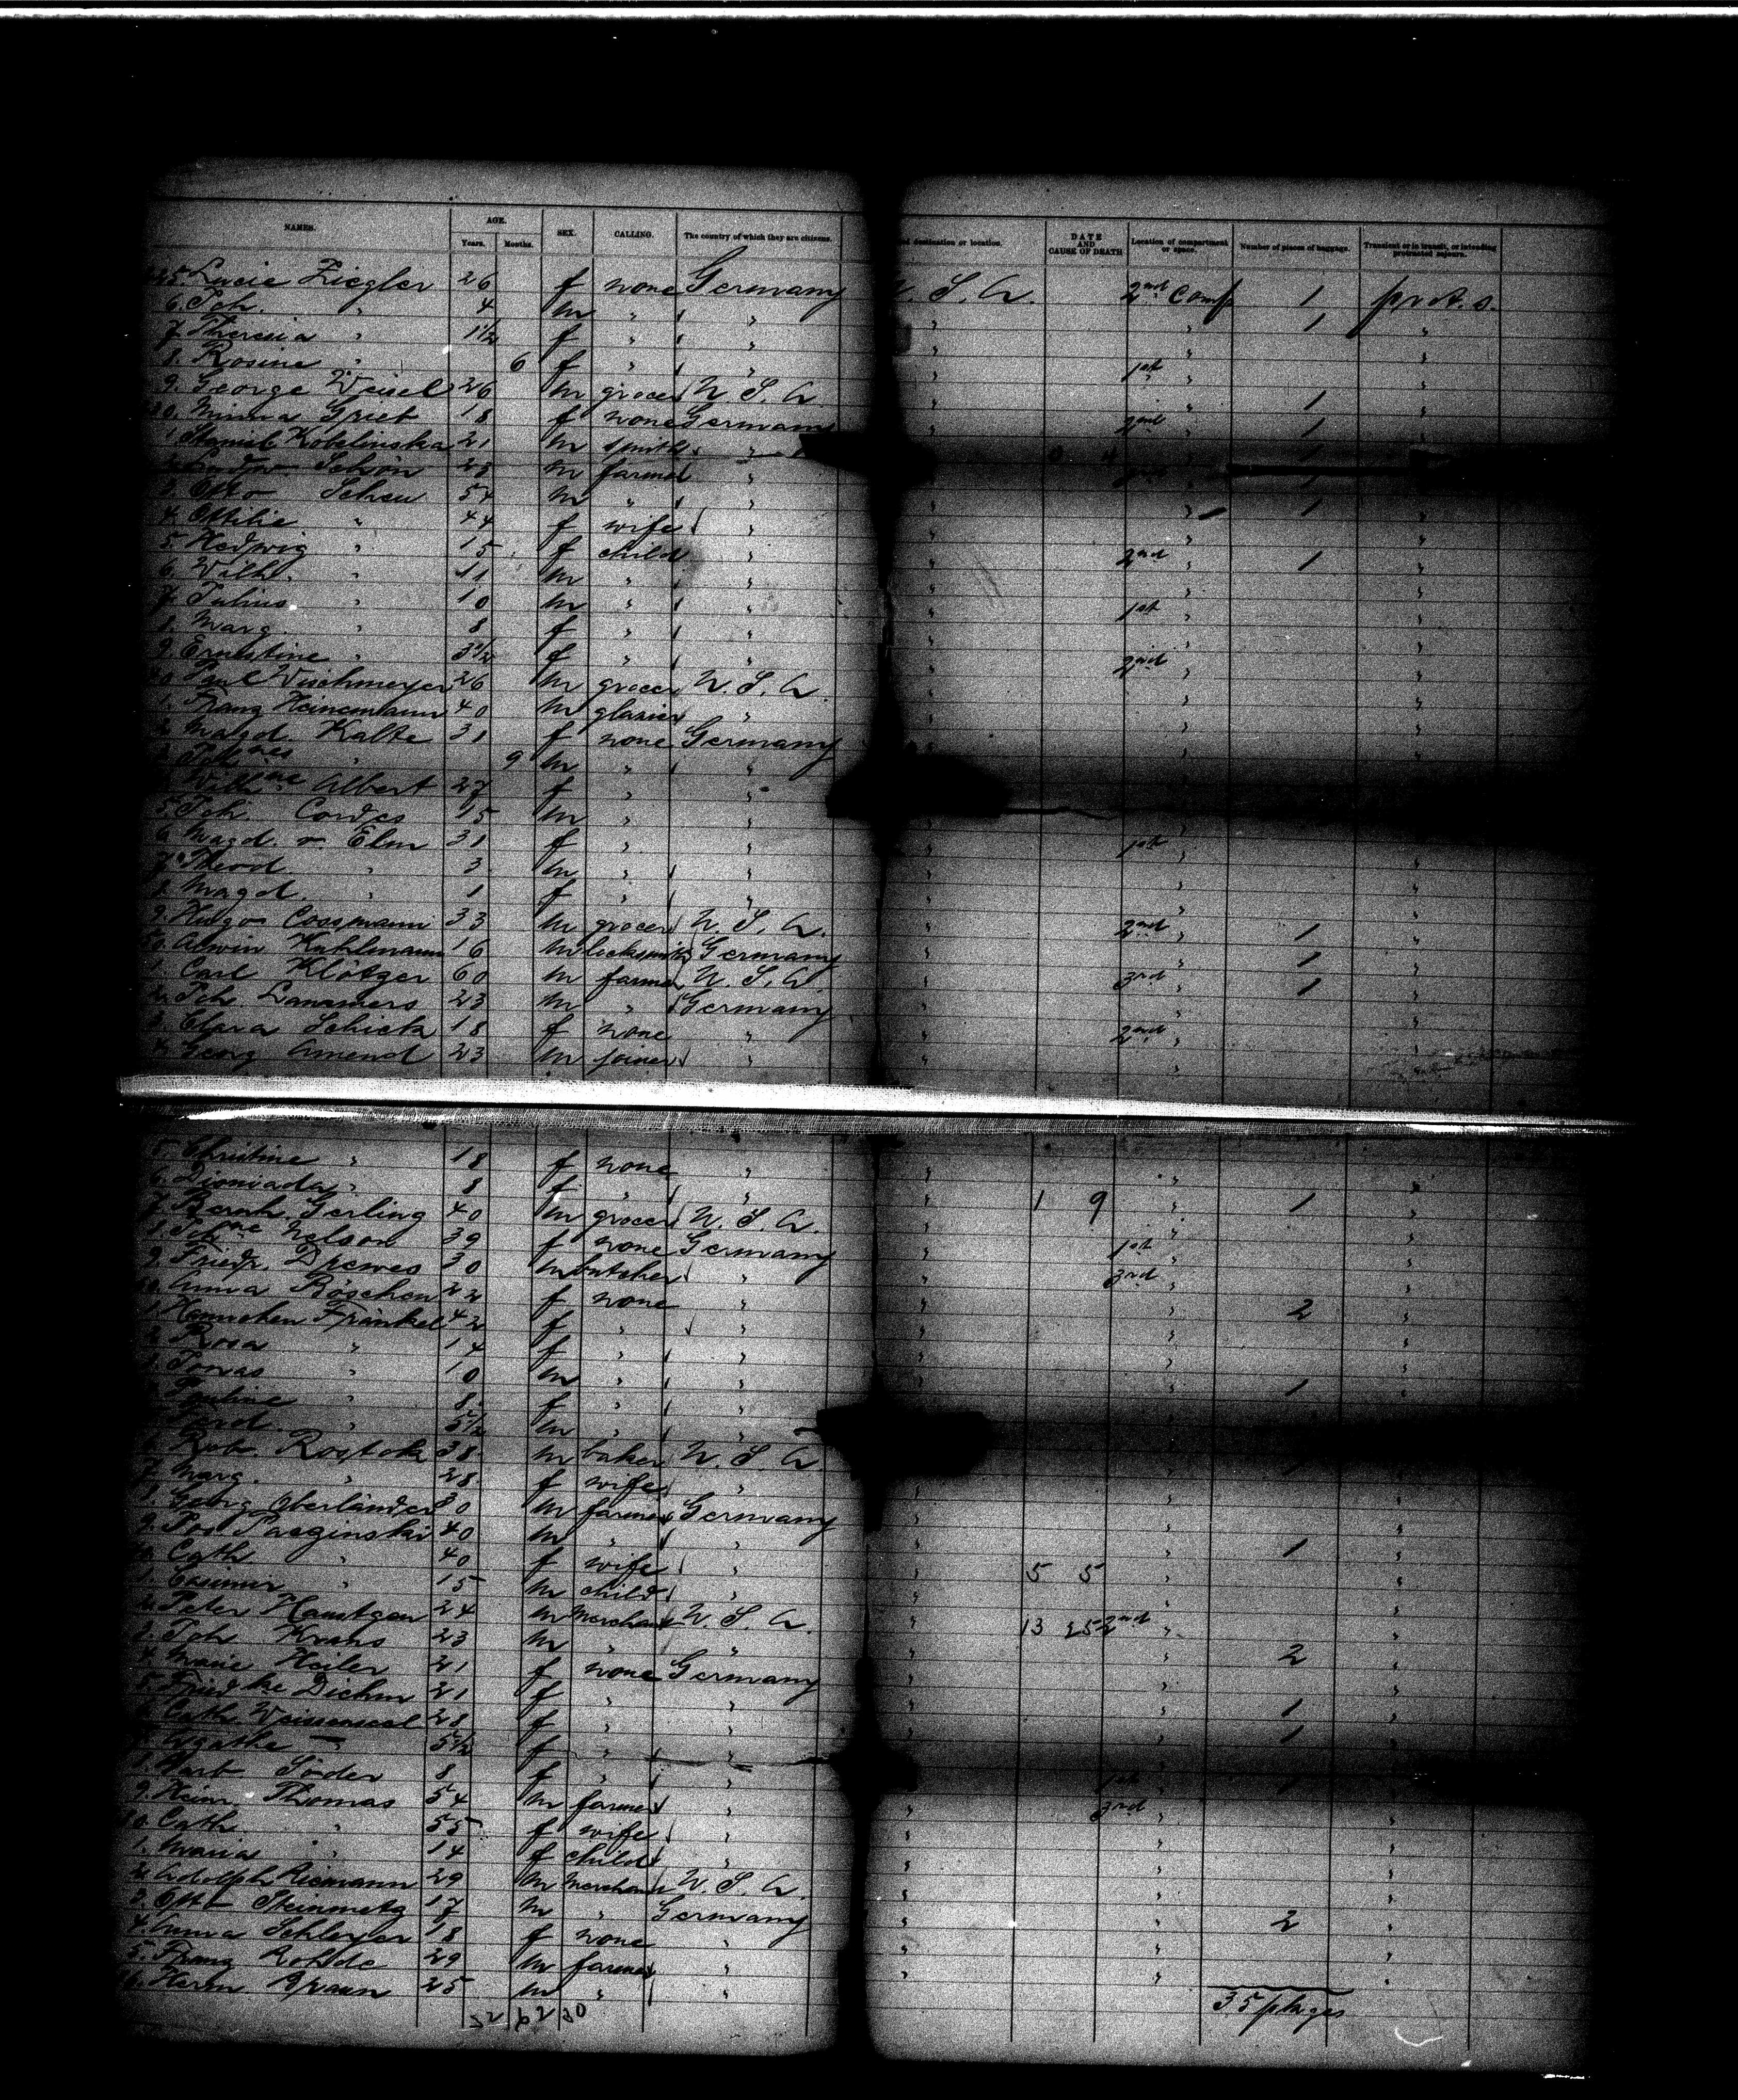 NAMES. AGE. SEX. CALLING. The country of which they are citizens. destination or location DATE AND CAUSE OF DEATH Location of compartment or space. Number of pieces of baggage. Transient or in transit, or intending protracted sojourn.
Years. Months.
Lucie Ziegler 26 f none Germany S. A. 2nd Comp 1 prot. s.
6. Joh. " 4 m " " " 1 "
7. Theresia " 1 1/2 f " " " " "
8. Rosine " 6 f " " " 1st " "
9. George Weisel 26 m grocer U. S. A. " " 1 "
Minna Griet 18 f none Germany " 2nd " 1 "
1. Kobelinska 21 m smith " " 1
Schön 25 m farmer " 1
3. Otto Scheu 54 m " " " " 1 "
4. Ottilie " 44 f wife " " " "
5. Hedwig " 15 f child " " 2nd " 1 "
6. Wilh. " 11 m " " " " "
7. Julius " 10 m " " " 1st " "
8. Marg. " 8 f " " " " "
9. Ernestine " 3 1/2 f " " " 2nd " "
Paul Wischmeyer 26 m grocer U. S. A. " " "
1. Franz Heinemann 40 m glazier " " " "
2. Magd. Kalte 31 f none Germany " " "
9 m " "
Wilhne Albert 27 f " "
5. Joh. Cordes 15 m " " " " "
6. Magd. v. Elm 31 f " " " 1st " "
7. Theod. " 3 m " " " " "
8. Magd. " 1 f " " " " "
9. Hugo Cossmann 33 m grocer U. S. A. " 2nd " 1 "
50. Kuhlmann 16 m locksmith Germany " " 1 "
1. Carl Klötzer 60 m farmer U. S. A. " 3rd " 1 "
2. Joh. Lammers 23 m " Germany " " "
3. Clara Schick 18 f none " " 2nd " "
4. Georg Amend 23 m joiner " " "
5. Christine " 18 f none " " " "
6. " 8 f " " " " "
7. Bernh. Gerling 40 m grocer U. S. A. " 1 9 " 1 "
8. Johne Nelson 39 f none Germany " 1st " "
9. Friedr. Drewes 30 m butcher " " 3rd " "
Anna Röschen 22 f none " " " 2 "
1. Hannchen Fränkel 42 f " " " " "
2. Rosa " 14 f " " " " "
3. Jonas " 10 m " " " " 1 "
4. Pauline " 8 f " " "
5. Ferd. " 5 1/2 m " "
6. Rob. Rostok 38 m baker U. S. A.
7. Marg. " 28 f wife " "
8. Georg Oberländer 30 m farmer Germany " " "
9. Jos. 40 m " " " " 1 "
Cath. " 40 f wife " " 5 5 " "
1. Casimir " 15 m child " " " "
2. Peter 24 m Merchant U. S. A. " 13 25 2nd " "
3. Joh. Krans 23 m " " " " 2 "
4. Marie Heiler 21 f none Germany " " "
5. Friedke Diehm 21 f " " " " 1 "
6. Cath. 28 f " " " " 1 "
7. Agathe " 5 1/2 f " "
8. 8 f " " 1st 1
9. Heinr. Thomas 54 m farmer " " 3rd " "
80. Cath. " 55 f wife " " " "
1. Maria " 14 f child " " " "
2. Adolph Riemann 29 m Merchant U. S. A. " " "
3. Otto Steinmetz 17 m " Germany " " 2 "
4. Anna 18 f none " " " "
5. Franz Rohde 29 m farmer " " " "
Herm. 25 m " " "
52 62 30
35 pkges